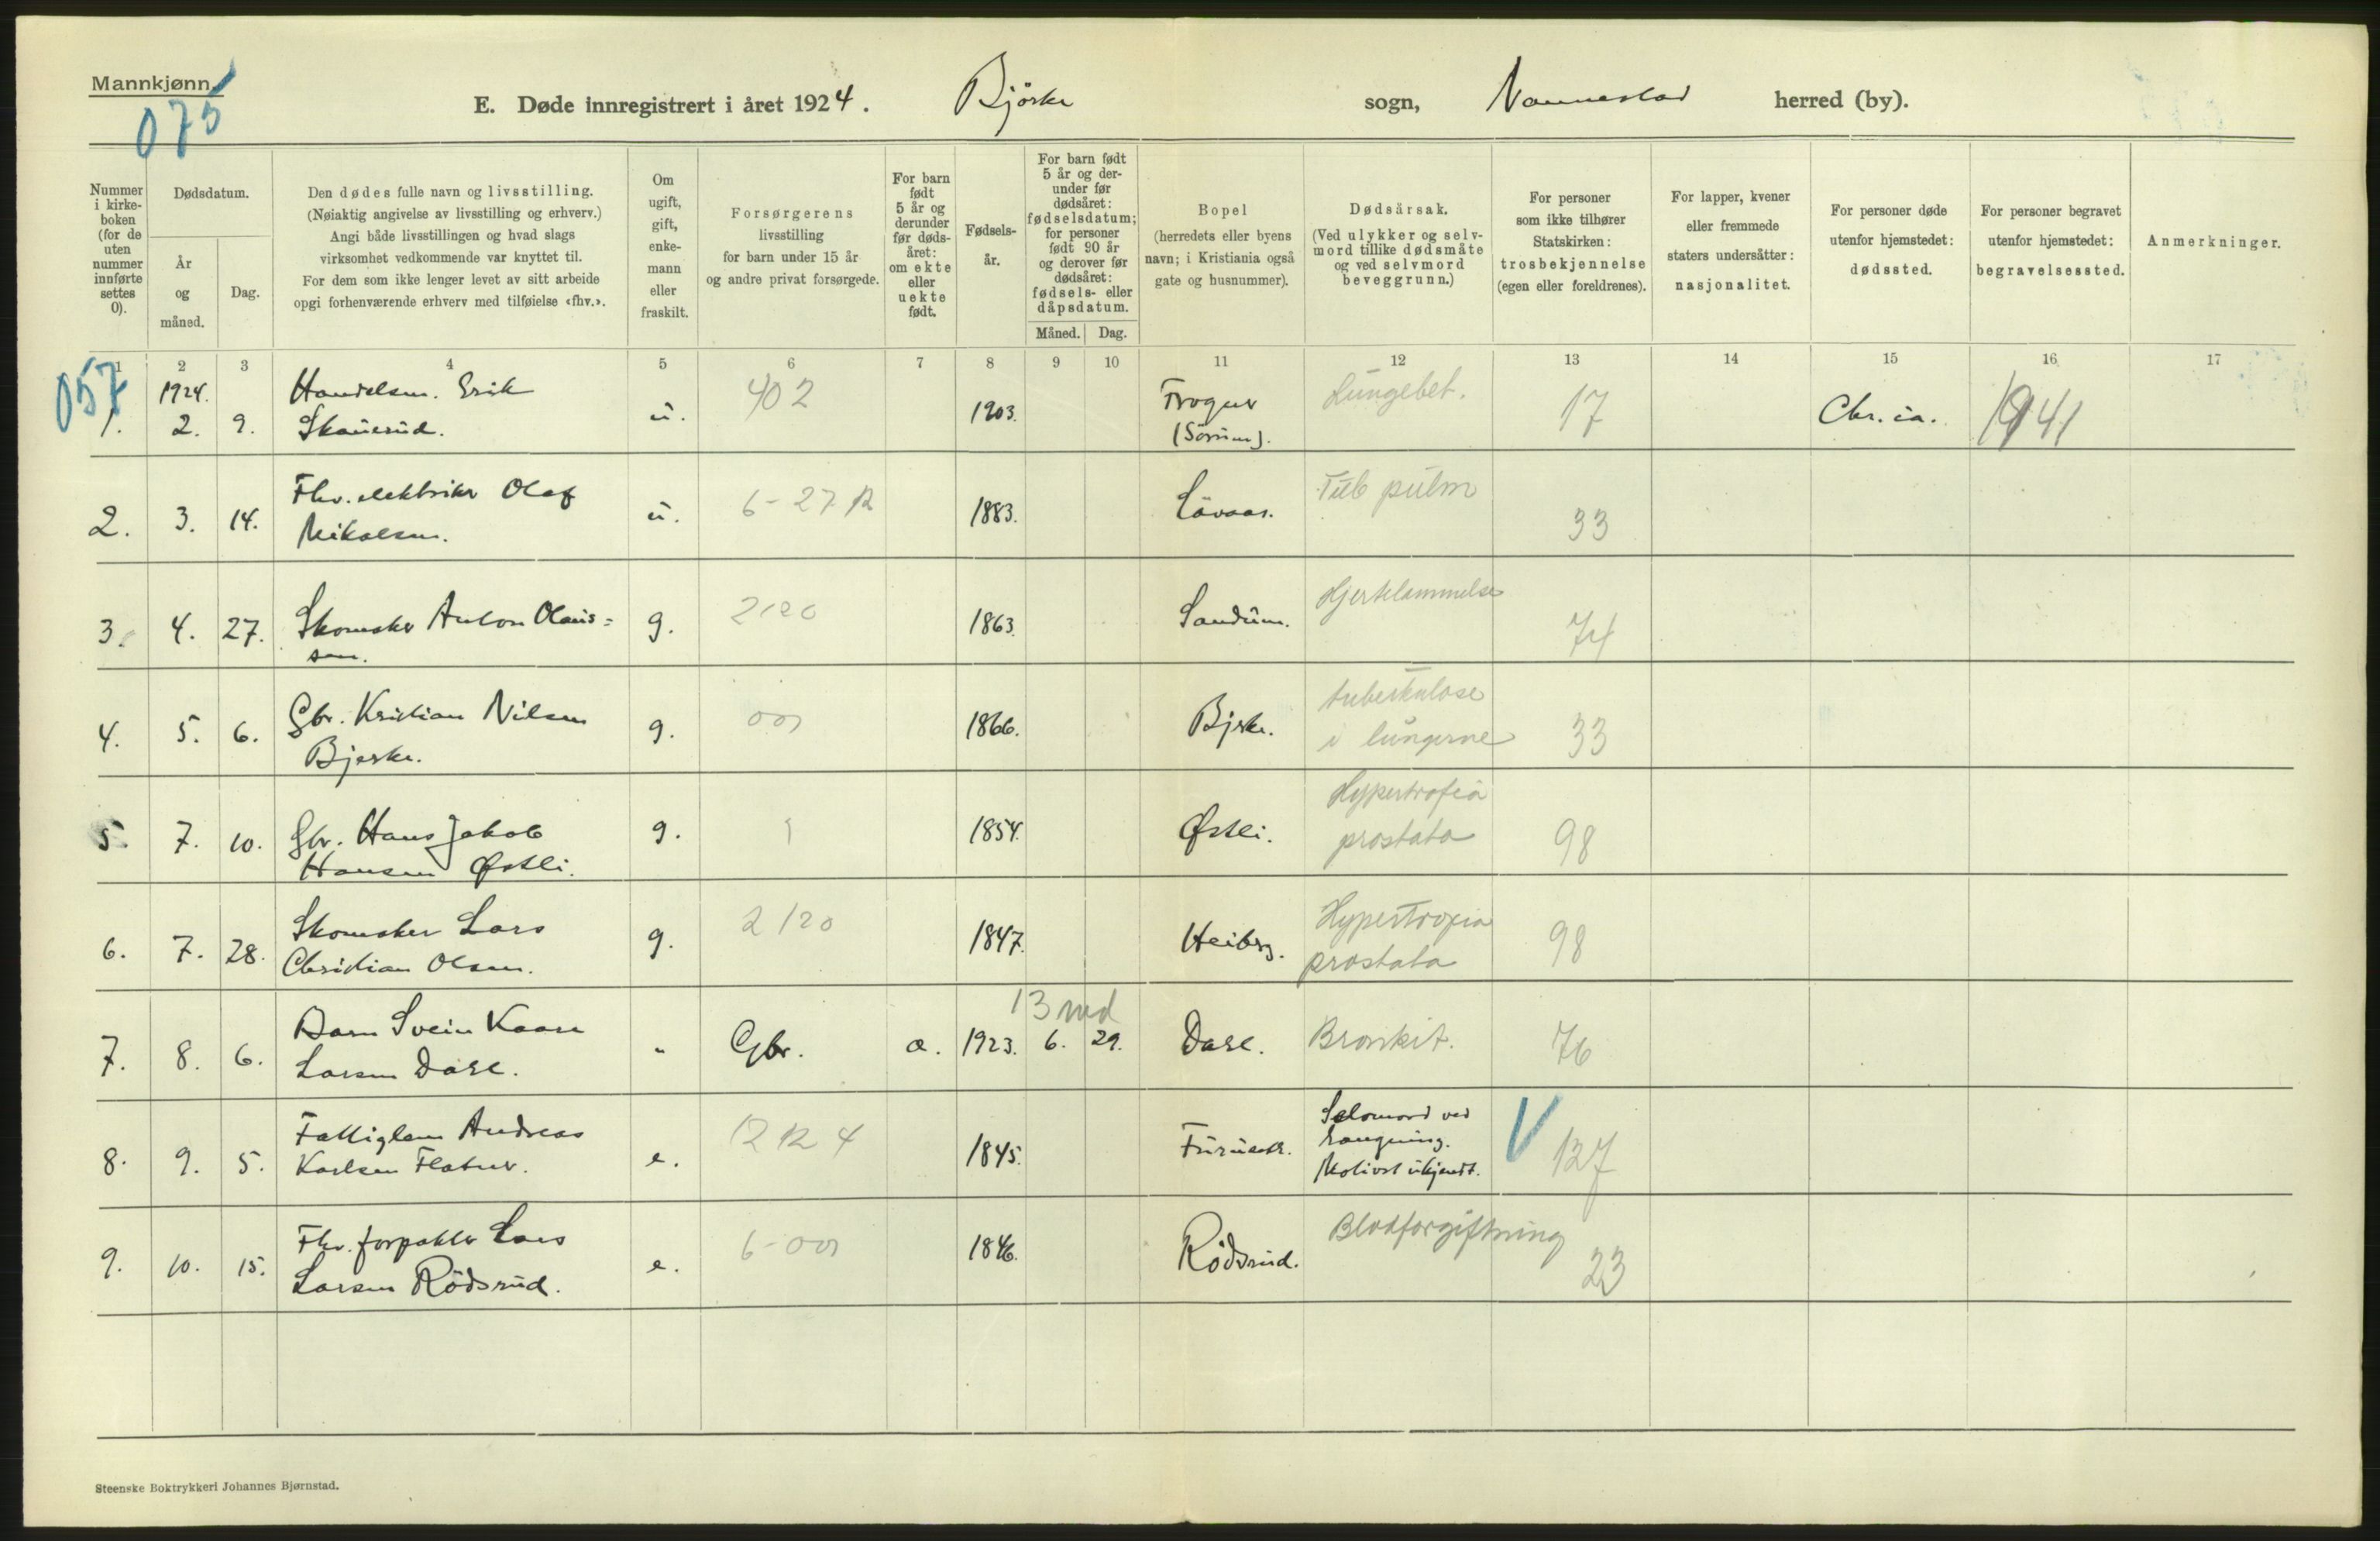 Mannkjønn.
075
E. Døde innregistrert i året 1924. Björke sogn, Nannestad herred (by).
Nummer i kirke-boken (for de uten nummer innførte settes 0).
Dødsdatum.
År og måned.
Dag.
Den dødes fulle navn og livsstilling.
(Nøiaktig angivelse av livsstilling og erhverv.)
Angi både livsstillingen og hvad slags
virksomhet vedkommende var knyttet til.
For dem som ikke lenger levet av sitt arbeide
opgi forhenværende erhverv med tilføielse «fhv.».
Om ugift, gift, enke-mann eller fraskilt.
Forsørgerens
livsstilling
for barn under 15 år
og andre privat forsørgede.
For barn født 5 år og derunder før døds-året: om ekte eller uekte født.
Fødsels-år.
For barn født 5 år og der-under før dødsåret: fødselsdatum; for personer født 90 år og derover før dødsåret: fødsels- eller dåpsdatum.
Måned. Dag.
Bopel
(herredets eller byens
navn; i Kristiania også
gate og husnummer).
Dødsårsak.
(Ved ulykker og selv-
mord tillike dødsmåte
og ved selvmord
beveggrunn.)
For personer
som ikke tilhører
Statskirken:
trosbekjennelse
(egen eller foreldrenes).
For lapper, kvener
eller fremmede
staters undersåtter:
nasjonalitet.
For personer døde
utenfor hjemstedet:
dødssted.
For personer begravet
utenfor hjemstedet:
begravelsessted.
Anmerkninger.
1 2 3 4 5 6 7 8 9 10 11 12 13 14 15 16 17
057
1924.
1. 2. 9. Handelsm. Erik Skauerud. u. 402 1903. Frogner (Sörum). Lungebet. 17 Chr.ia. 1941
2. 3. 14. Fhv. elektriker Olaf Nikolsen. u. 6-27 12 1883. Lövaas. Tub pulm 33
3. 4. 27. Skomaker Anton Olaus=
sen. g. 2120 1863. Sandum. Hjertelammelse 74
4. 5. 6. Gbr. Kristian Nilsen Bjerke. g. 001 1866. Bjerke. tuberkulose i lungerne 33
5. 7. 10. Gbr. Hans Jakob Hansen Østli. g. 1 1854. Østli. Hypertrofia prostata 98
6. 7. 28. Skomaker Lars Christian Olsen. g. 2120 1847. Heiberg. Hypertrofia prostata 98
13 md
7. 8. 6. Barn Svein Kaare Larsen Dahl. " Gbr. e. 1923. 6. 29. Dahl. Bronkit. 76
8. 9. 5. Fattiglem Andreas Karlsen Flatner. e. 12 12 4 1845. Selvmord ved hengning. Motivet ukjendt. V 127
9. 10. 15. Fhv. forpakter Lars Larsen Rödsrud. e. 6-001 1846. Rödsrud. Blodforgiftning 23
Steenske Boktrykkeri Johannes Bjørnstad.